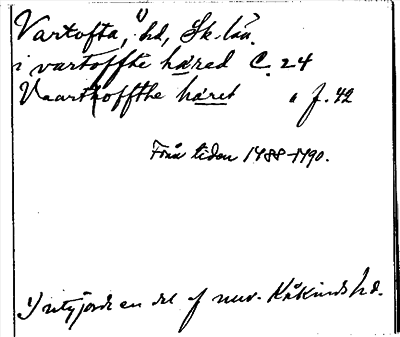 Vartofta,¹⁾ hd, Sk. län.
i vartoffthe häred C. 24
Vaarthoffthe häret " f. 42
Från tiden 1488-1490.
¹⁾ utgjorde en del af nuv. Kåkinds hd.